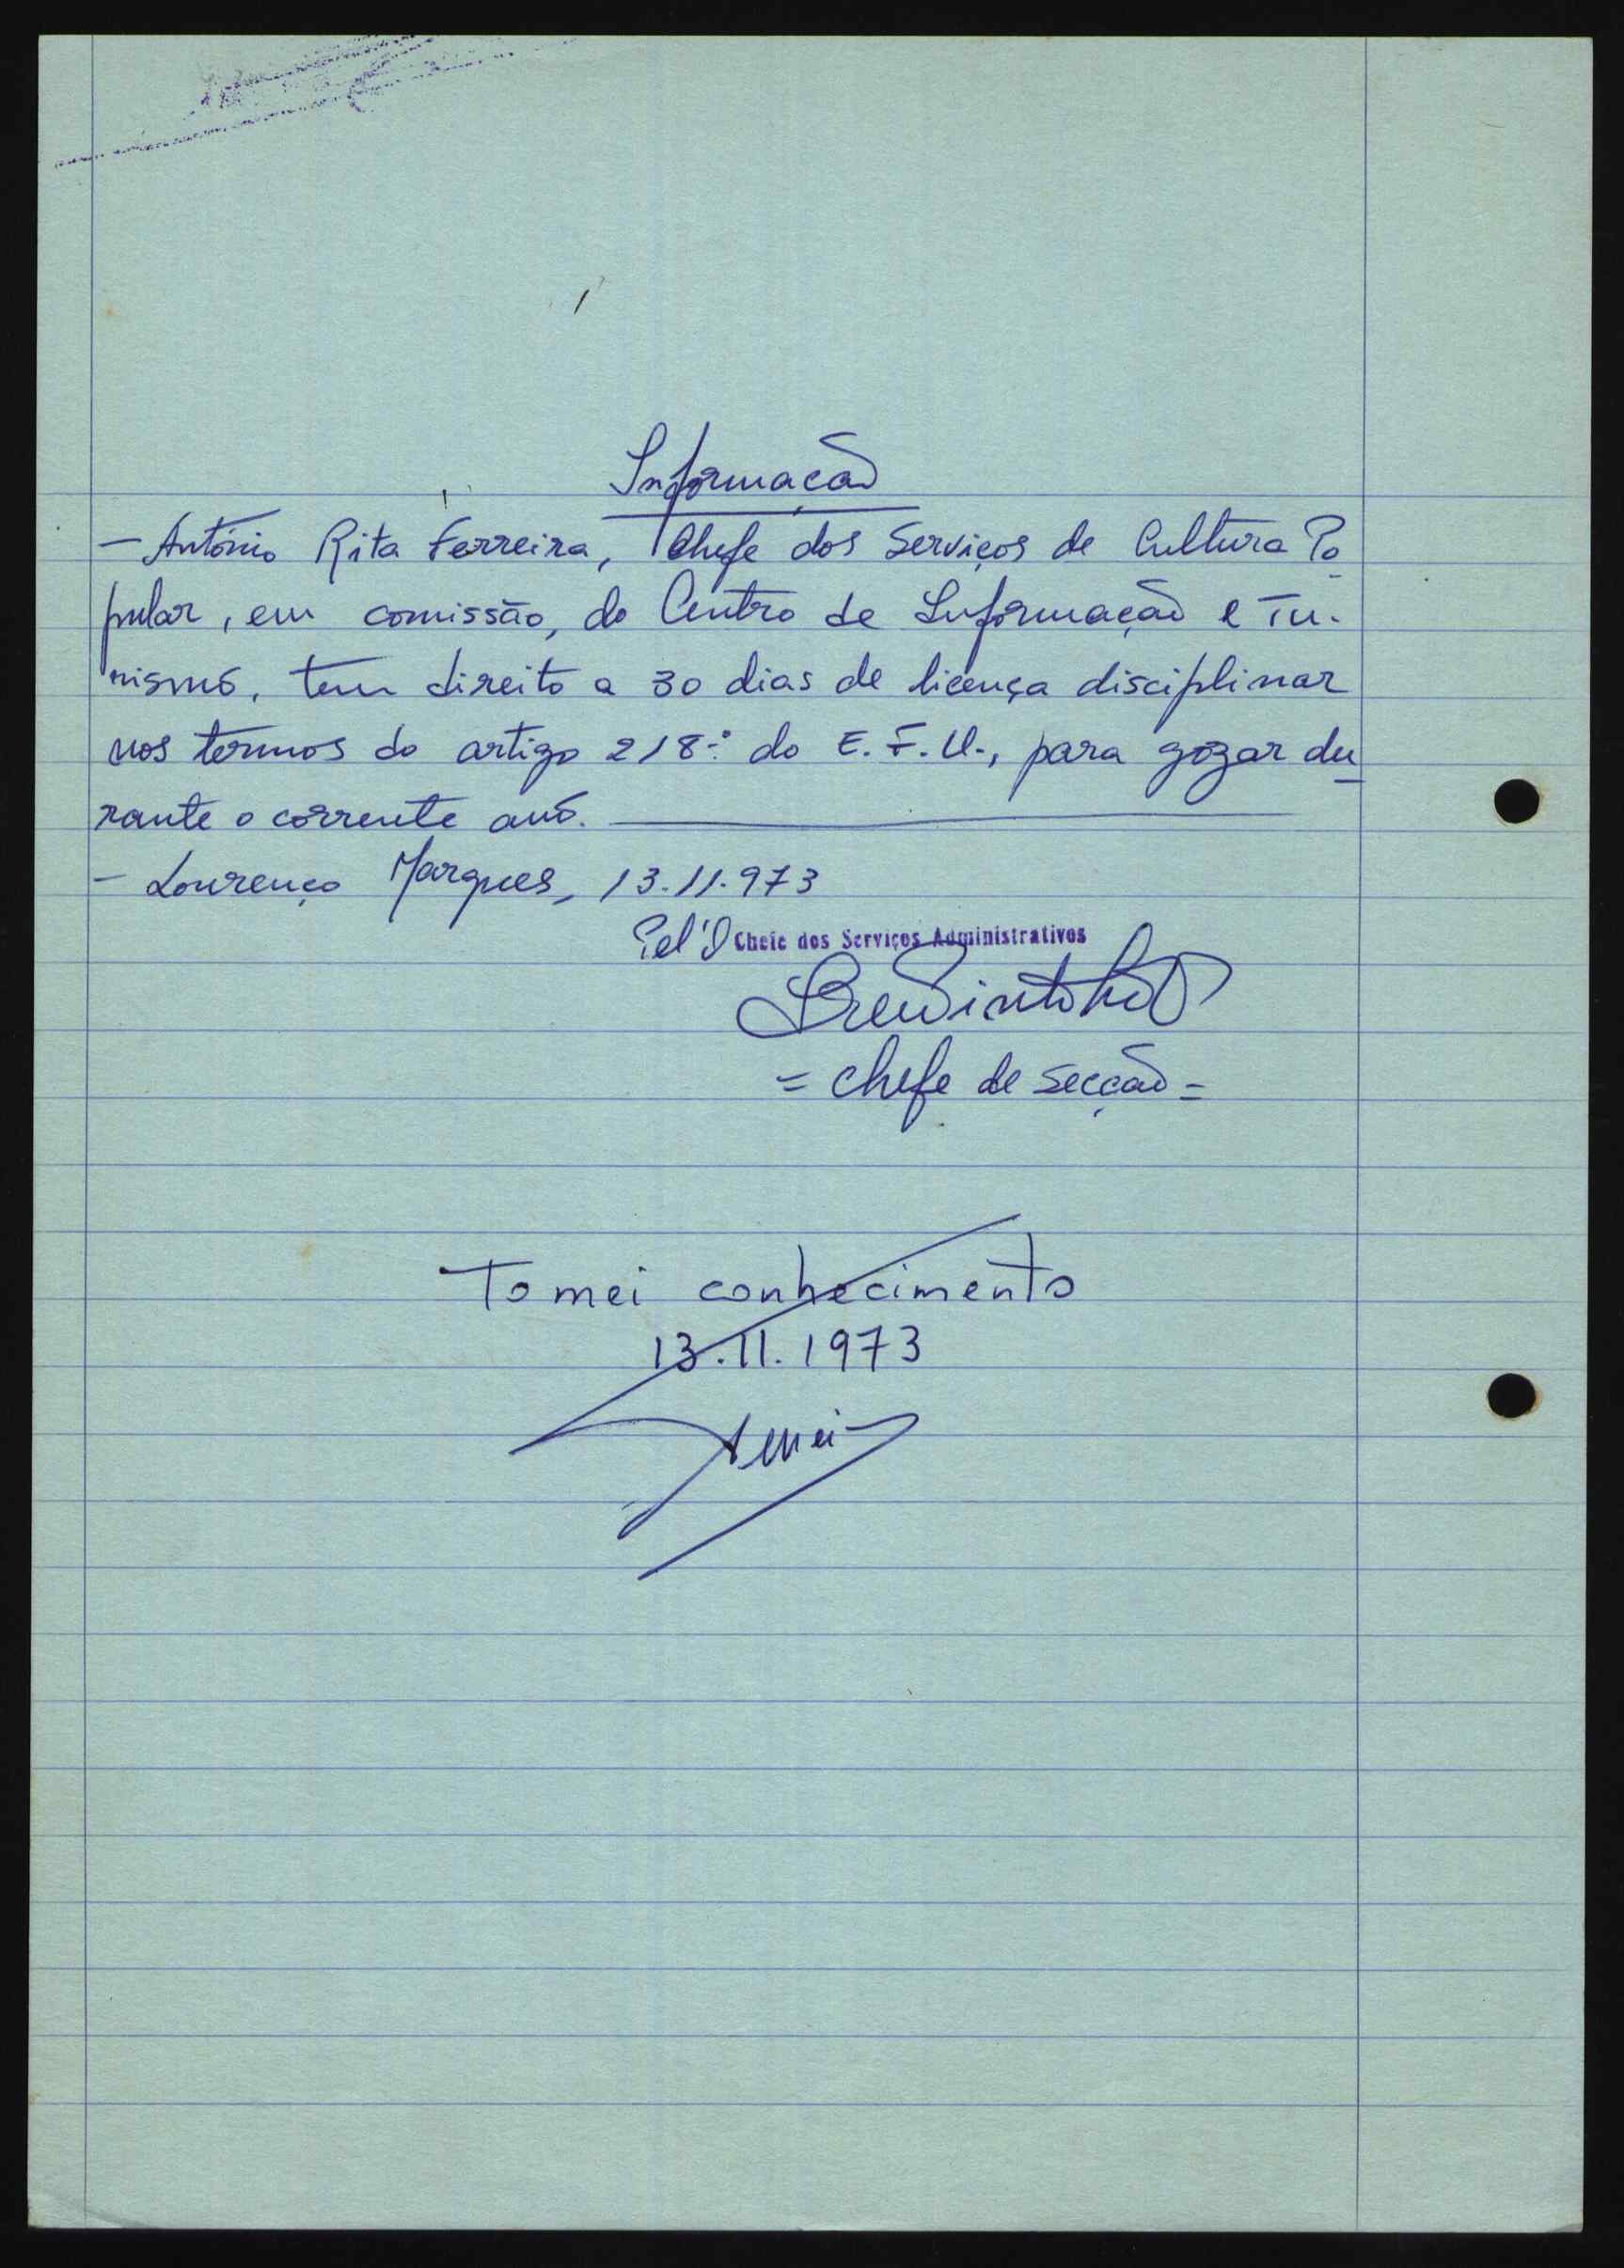 Informação
— António Rita Ferreira, Chefe dos Serviços de Cultura Po
pular, em comissão, do Centro de Informação e Tu-
rismo, tem direito a 30 dias de licença disciplinar
nos termos do artigo 218.º do E. F. U., para gozar du
rante o corrente ano.
- Lourenço Marques, 13.11.973
Pel'O Chefe dos Serviços Administrativos
= Chefe de Secção =
Tomei conhecimento
13.11.1973